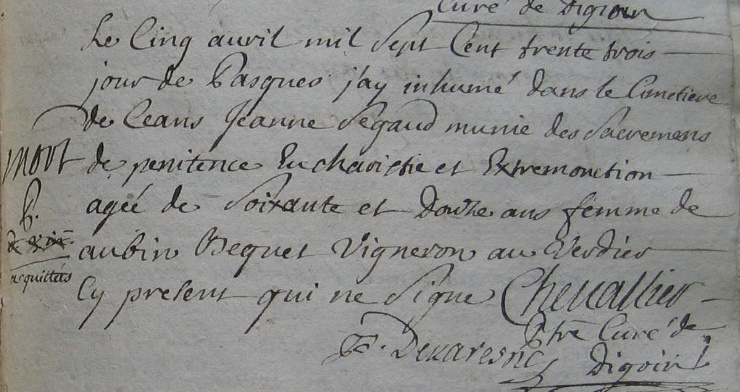 Curé de Digoin
Le Cinq auril mil Sept Cent trente trois
jour de Pasques j'ay inhumé dans le Cimetiere
de Ceans Jeanne Segaud munie des Sacremens
mort
de penitence Eucharistie et Extremonction
P.
agée de Soixante et Douze ans femme de
aubin Bequet Vigneron au Verdier
acquittés
Cy present qui ne Signe Cheuallier
Ptre Curé de
Digoin